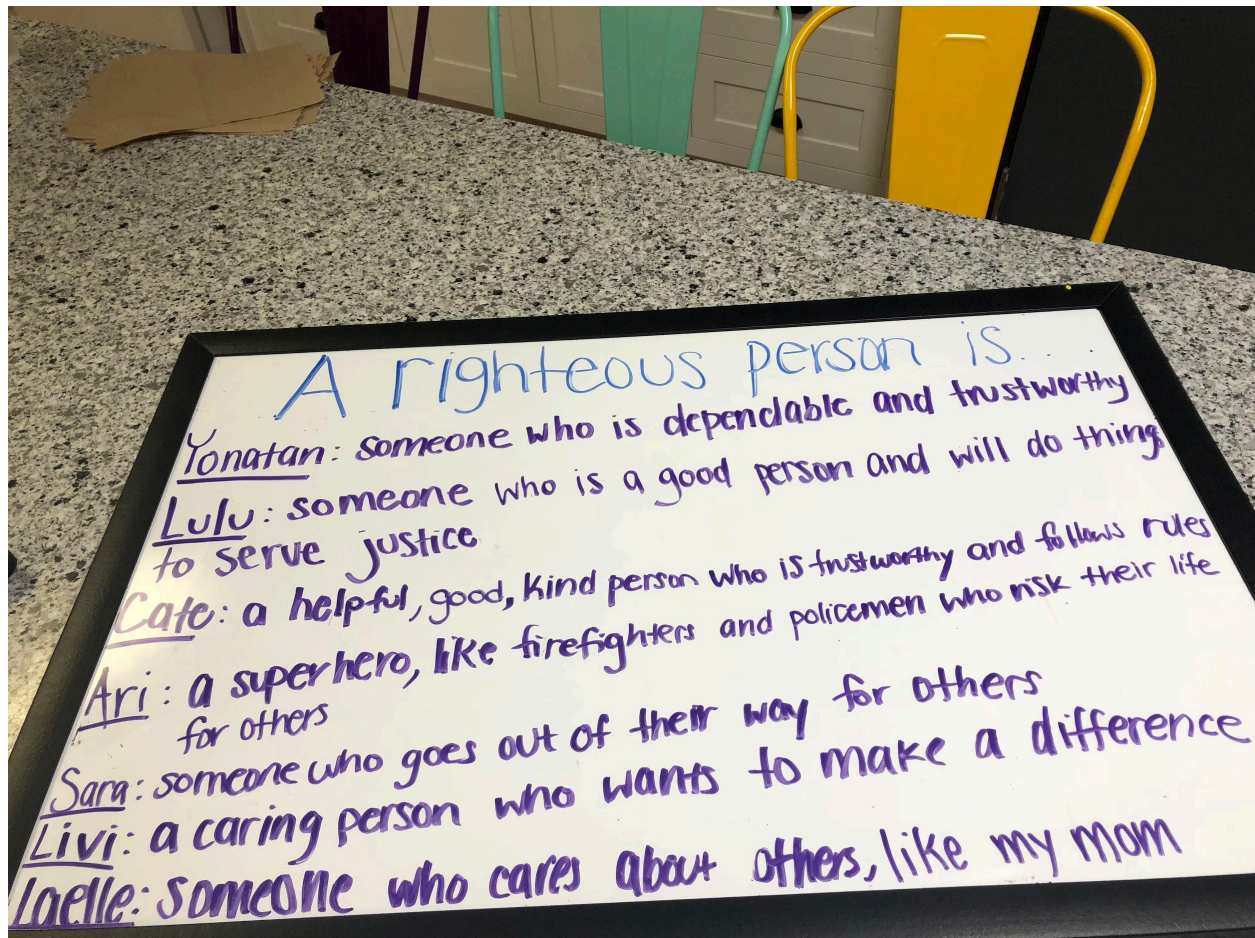 A righteous person is...
Yonatan: someone who is dependable and trustworthy
Lulu: someone who is a good person and will do things
to serve justice
Cate: a helpful, good, kind person who is trustworthy and follows rules
Ari: a superhero, like firefighters and policemen who risk their life
for others
Sara: someone who goes out of their way for others
Livi: a caring person who wants to make a difference
someone who cares about others, like my mom